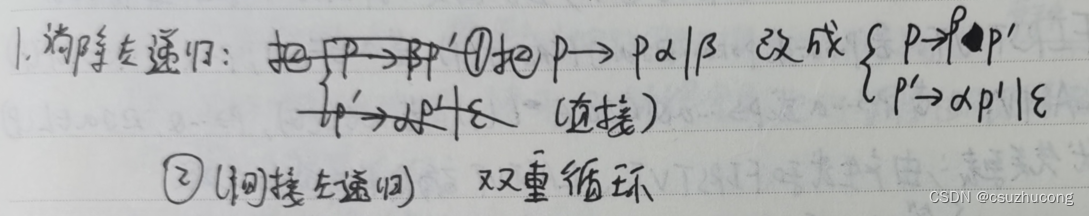 1. 消除左递归: 把{P→βP' ①把 P→Pα|β 改成{P→βP'
P'→αP'|ε (直接) P'→αP'|ε
②(间接左递归) 双重循环
CSDN @csuzhucong